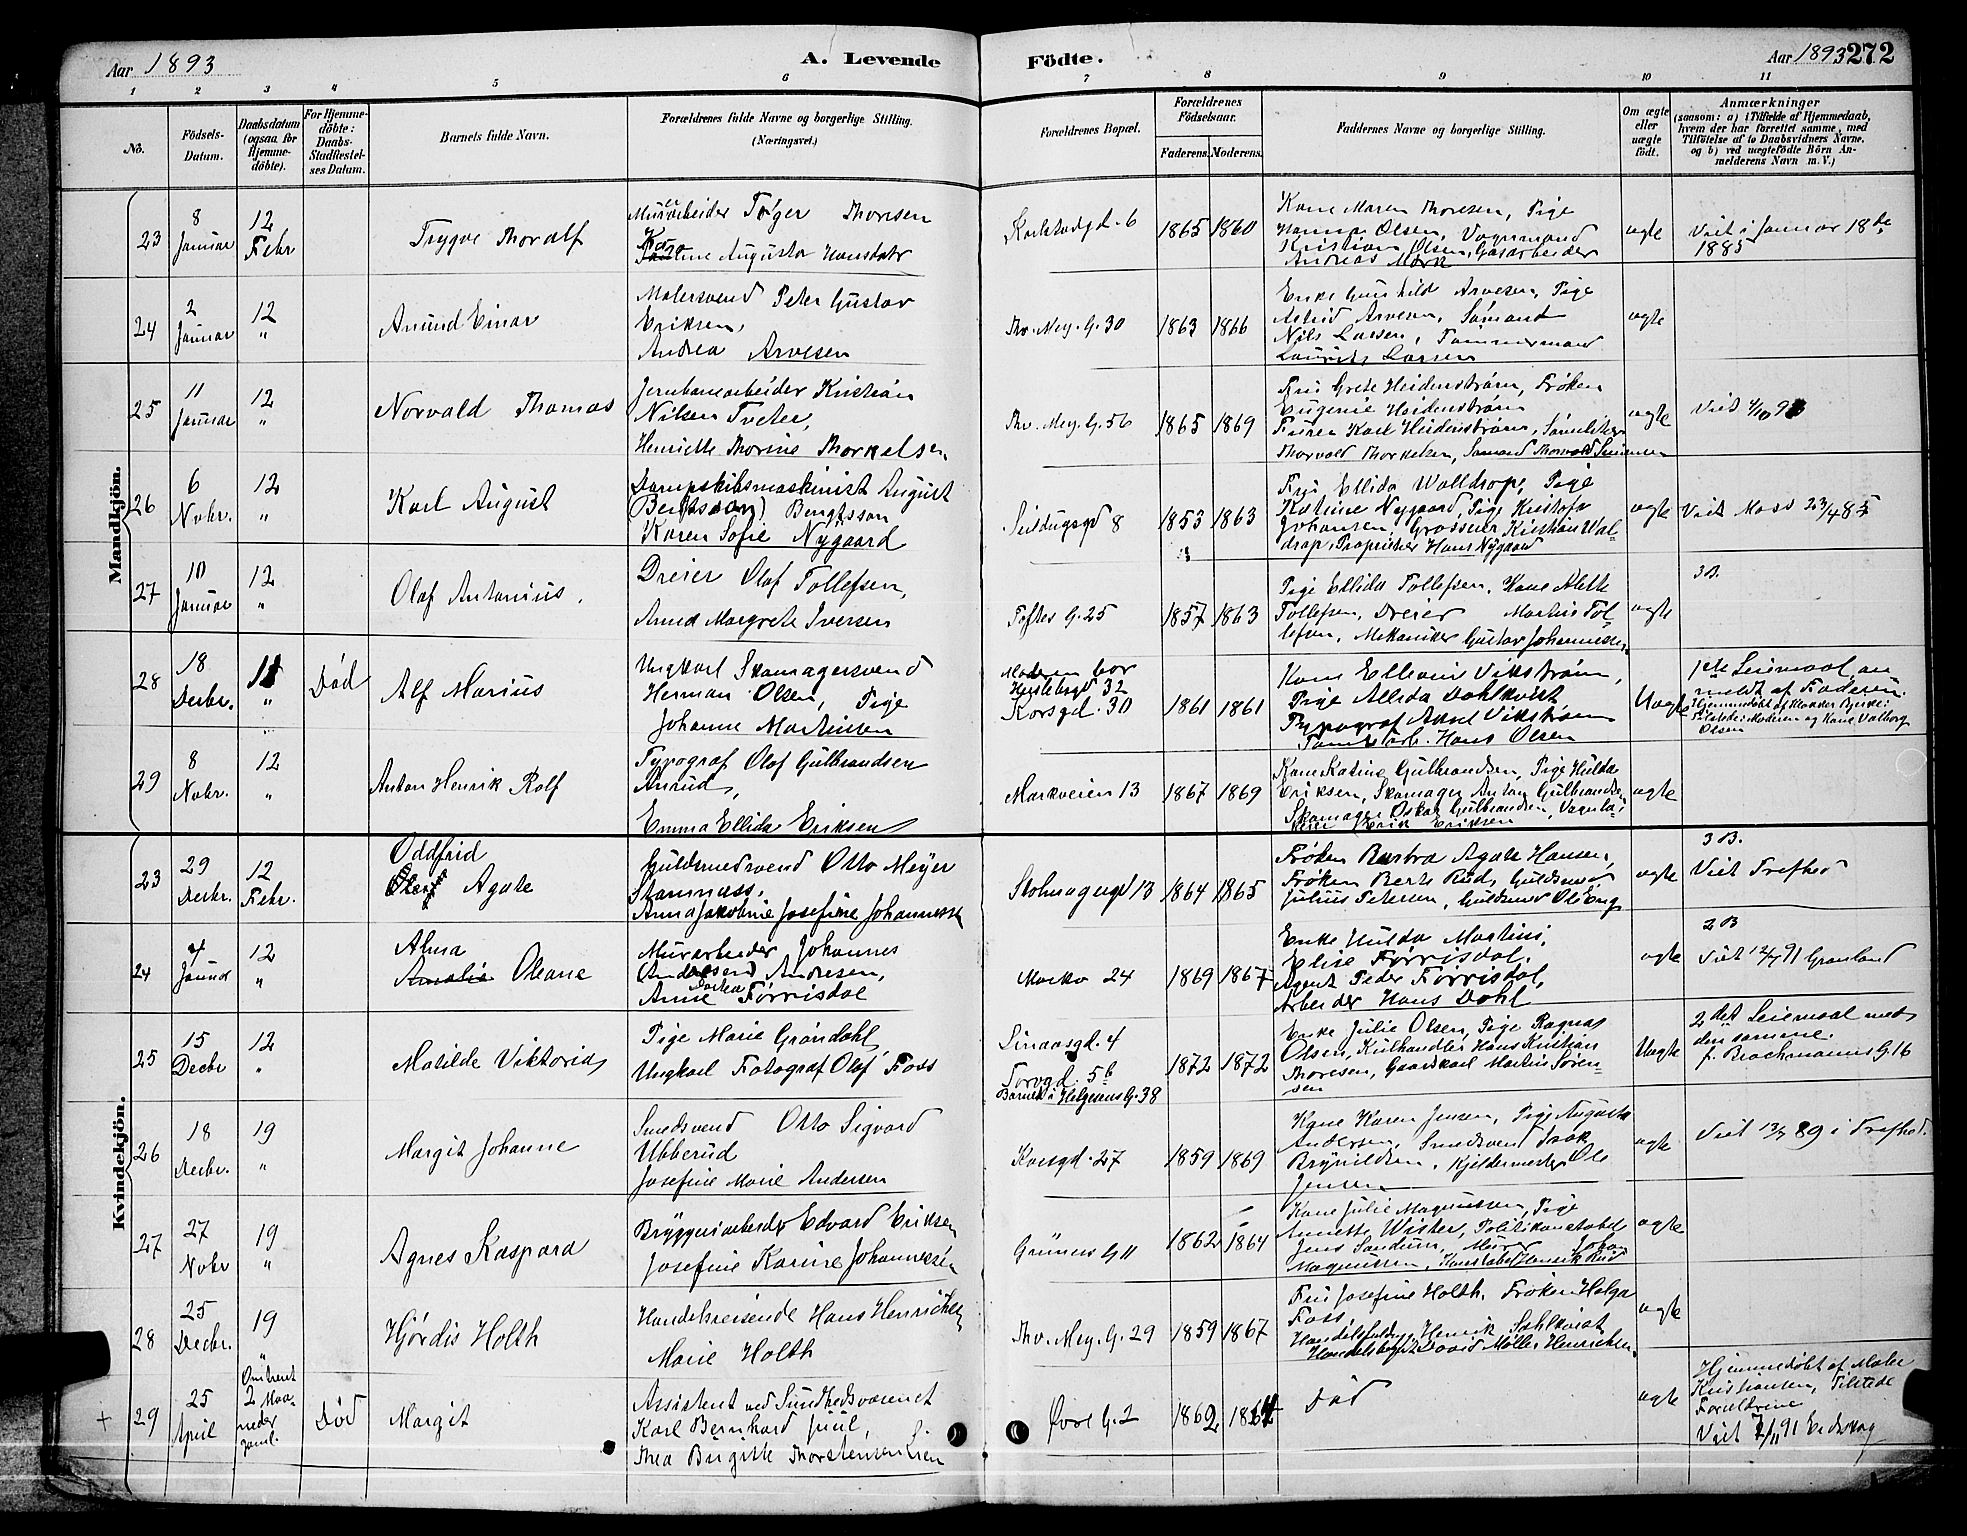 Aar 1893
A. Levende
Födte.
Aar 1893
272
1 2 3 4 5 6 7 8 9 10 11
No.
Födsels-
Datum.
Daabsdatum
(ogsaa for
Hjemme-
döbte).
For Hjemme-
döbte:
Daabs-
Stadfæstel-
ses Datum.
Barnets fulde Navn.
Forældrenes fulde Navne og borgerlige Stilling.
(Næringsvei.)
Forældrenes Bopæl.
Forældrenes
Födselsaar.
Faderens. Moderens.
Faddernes Navne og borgerlige Stilling.
Om ægte
eller
uægte
födt.
Anmærkninger
(saasom: a) i Tilfælde af Hjemmedaab,
hvem der har forrettet samme, med
Tilföielse af to Daabsvidners Navne,
og b) ved uægtefödte Börn An-
melderens Navn m. V.)
Mandkjön.
23
8
Januar
12
Febr
Trygve Thoralf
Murarbeider Tøger Thoresen
Karoline Augusta Hansdatr
Karlstadgd. 6
1865 1860
Kone Maren Thoresen, Pige
Hanna Olsen, Vognmand
Kristian Olsen, Gasarbeider
Andreas Mørk
ægte
Viet i Januar 18de
1885
24
2
Januar
12
"
Amund Einar
Malersvend Peter Gustav
Eriksen,
Andrea Arvesen
Thv. Mey. G. 30
1863 1866
Enke Gunhild Arvesen, Pige
Astrid Arvesen, Sømand
Nils Larsen, Tømmermand
Laurits Larsen
ægte
25
11
Januar
12
"
Norvald Thomas
Jernbanearbeider Kristian
Nilsen Tveter,
Henriette Thorine Thorkelsen
Thv. Mey. G. 56
1865 1869
Fru Grete Heidenstrøm, Frøken
Eugenie Heidenstrøm
Furer Karl Heidenstrøm,
Thorvald Thorkelsen, Sømand Thorvald Simensen
ægte
Viet
26
6
Nobr.
12
"
Karl August
Dampskibsmaskinist August
(Bengtsson) Bengtsson
Karen Sofie Nygaard
Seildugsgd 8
1853 1863
Fru Ellida Walldrope, Pige
Katrine Nygaard, Pige Kristofa
Johansen, Grosserer Kristian Wal-
drop, Proprietær Hans Nygaard
ægte
Viet Moss 23/4 85
27
10
Januar
12
"
Olaf Antonius.
Dreier Olaf Tollefsen,
Anna Margrete Iversen
Toftes G. 25
1857 1863
Pige Ellida Tollefsen, Kone Alette
Tollefsen, Dreier Martin Tol
lefsen, Mekaniker Gustav Johannessen
ægte
3 B.
28
18
Decbr.
"
Død
Alf Marius
Ungkarl Skomagersvend
Herman Olsen, Pige
Johanne Martinsen
Moderen bor
Herslebsgd 32
Korsgd. 30
1861 1861
Kone Ellevine Vikstrøm,
Pige Allida Dahlkvist
Typograf Aksel Vikstrøm
Tømrearb. Hans Olsen
Uægte
1ste Leiemaal, an
meldt af Faderen.
Hjemmedøbt af Klokker Bjerke:
Tilstede: Moderen og Kone Valborg
Olsen
29
8
Nobr.
12
"
Anton Henrik Rolf
Typograf Olaf Gulbrandsen
Anrud,
Emma Ellida Eriksen
Markveien 13
1867 1869
Kone Katine Gulbrandsen, Pige Hulda
Eriksen, Skomager Anton Gulbrandsen
Skomager Oskar Gulbrandsen,
Erik Eriksen
ægte
Kvindekjön.
23
29
Decbr.
12
Febr.
Oddfrid
Agate
Guldsmedsvend Otto Meyer
Stamnæss,
Anna Jakobine Josefine Johannessen
Stolmagergd 13
1864 1865
Frøken Barbra Agate Hansen,
Frøken Berte Rud, Guldsmed
Julius Petersen, Guldsmed Ole Eng
ægte
3 B.
Viet Trefhed
24
4
Januar
12
"
Alma
Amalie Oleane
Murarbeider Johannes
(Andersen) Andresen,
Anne Dortea Førrisdal
Markv 24
1869 1867
Enke Hulda Martins,
Elise Førrisdal,
Agent Peder Førrisdal,
Arbeider Hans Dahl
ægte
2 B
Viet 12/7 91 Grønland
25
15
Decbr
12
"
Matilde Viktoria
Pige Marie Grøndahl
Ungkarl Fotograf Olaf Foss
Sinaasgd. 4
Torvgd. 5b
Barnet i Helgesens G. 38
1872 1872
Enke Julie Olsen, Pige Ragna
Olsen, Kulhandler Hans Kristian
Thoresen, Gaardskarl Martin Søren-
sen
Uægte
2det Leiemaal med
den samme.
f. Brochmanns G. 16
26
18
Decbr.
19
"
Margit Johanne
Smedsvend Otto Sigvard
Ubberud
Josefine Marie Andersen
Korsgd. 27
1859 1869
Kone Karen Jensen, Pige Augusta
Andersen, Smedsvend Isak
Brynildsen, Kjeldermester Ole
Jensen
ægte
Viet 13/7 89 i Trefhed.
27
27
Nobr
19
"
Agnes Kaspara
Bryggeriarbeider Edvard Eriksen
Josefine Karine Johannessen
Grüners G 11
1862 1864
Kone Julie Magnussen, Pige
Annette Wister, Politikonstabel
Jens Sandum, Murer Johan
Magnussen, Konstabel Henrik Rud
ægte
28
25
Decbr.
19
"
Hjørdis Holth
Handelsreisende Hans Henrichsen
Marie Holth
Thv. Mey. G. 29
1859 1867
Fru Josefine Holth, Frøken Helga
Foss
Handelsfuldm. Henrik Sahlkvist
Handelsbetjent David Møller Henrichsen.
ægte
+ 29
25
April
Omtrent
2 Maa-
neder
gaml.
Død
Margit
Assistent ved Sundhedsvæsenet
Karl Bernhard Juul,
Thea Birgitte Thorstensen Lien
Øvre G. 2
1862 1864
Død
ægte
Hjemmedøbt af Maler
Kristiansen, Tilstede
Forældrene
Viet 91 Eidskog